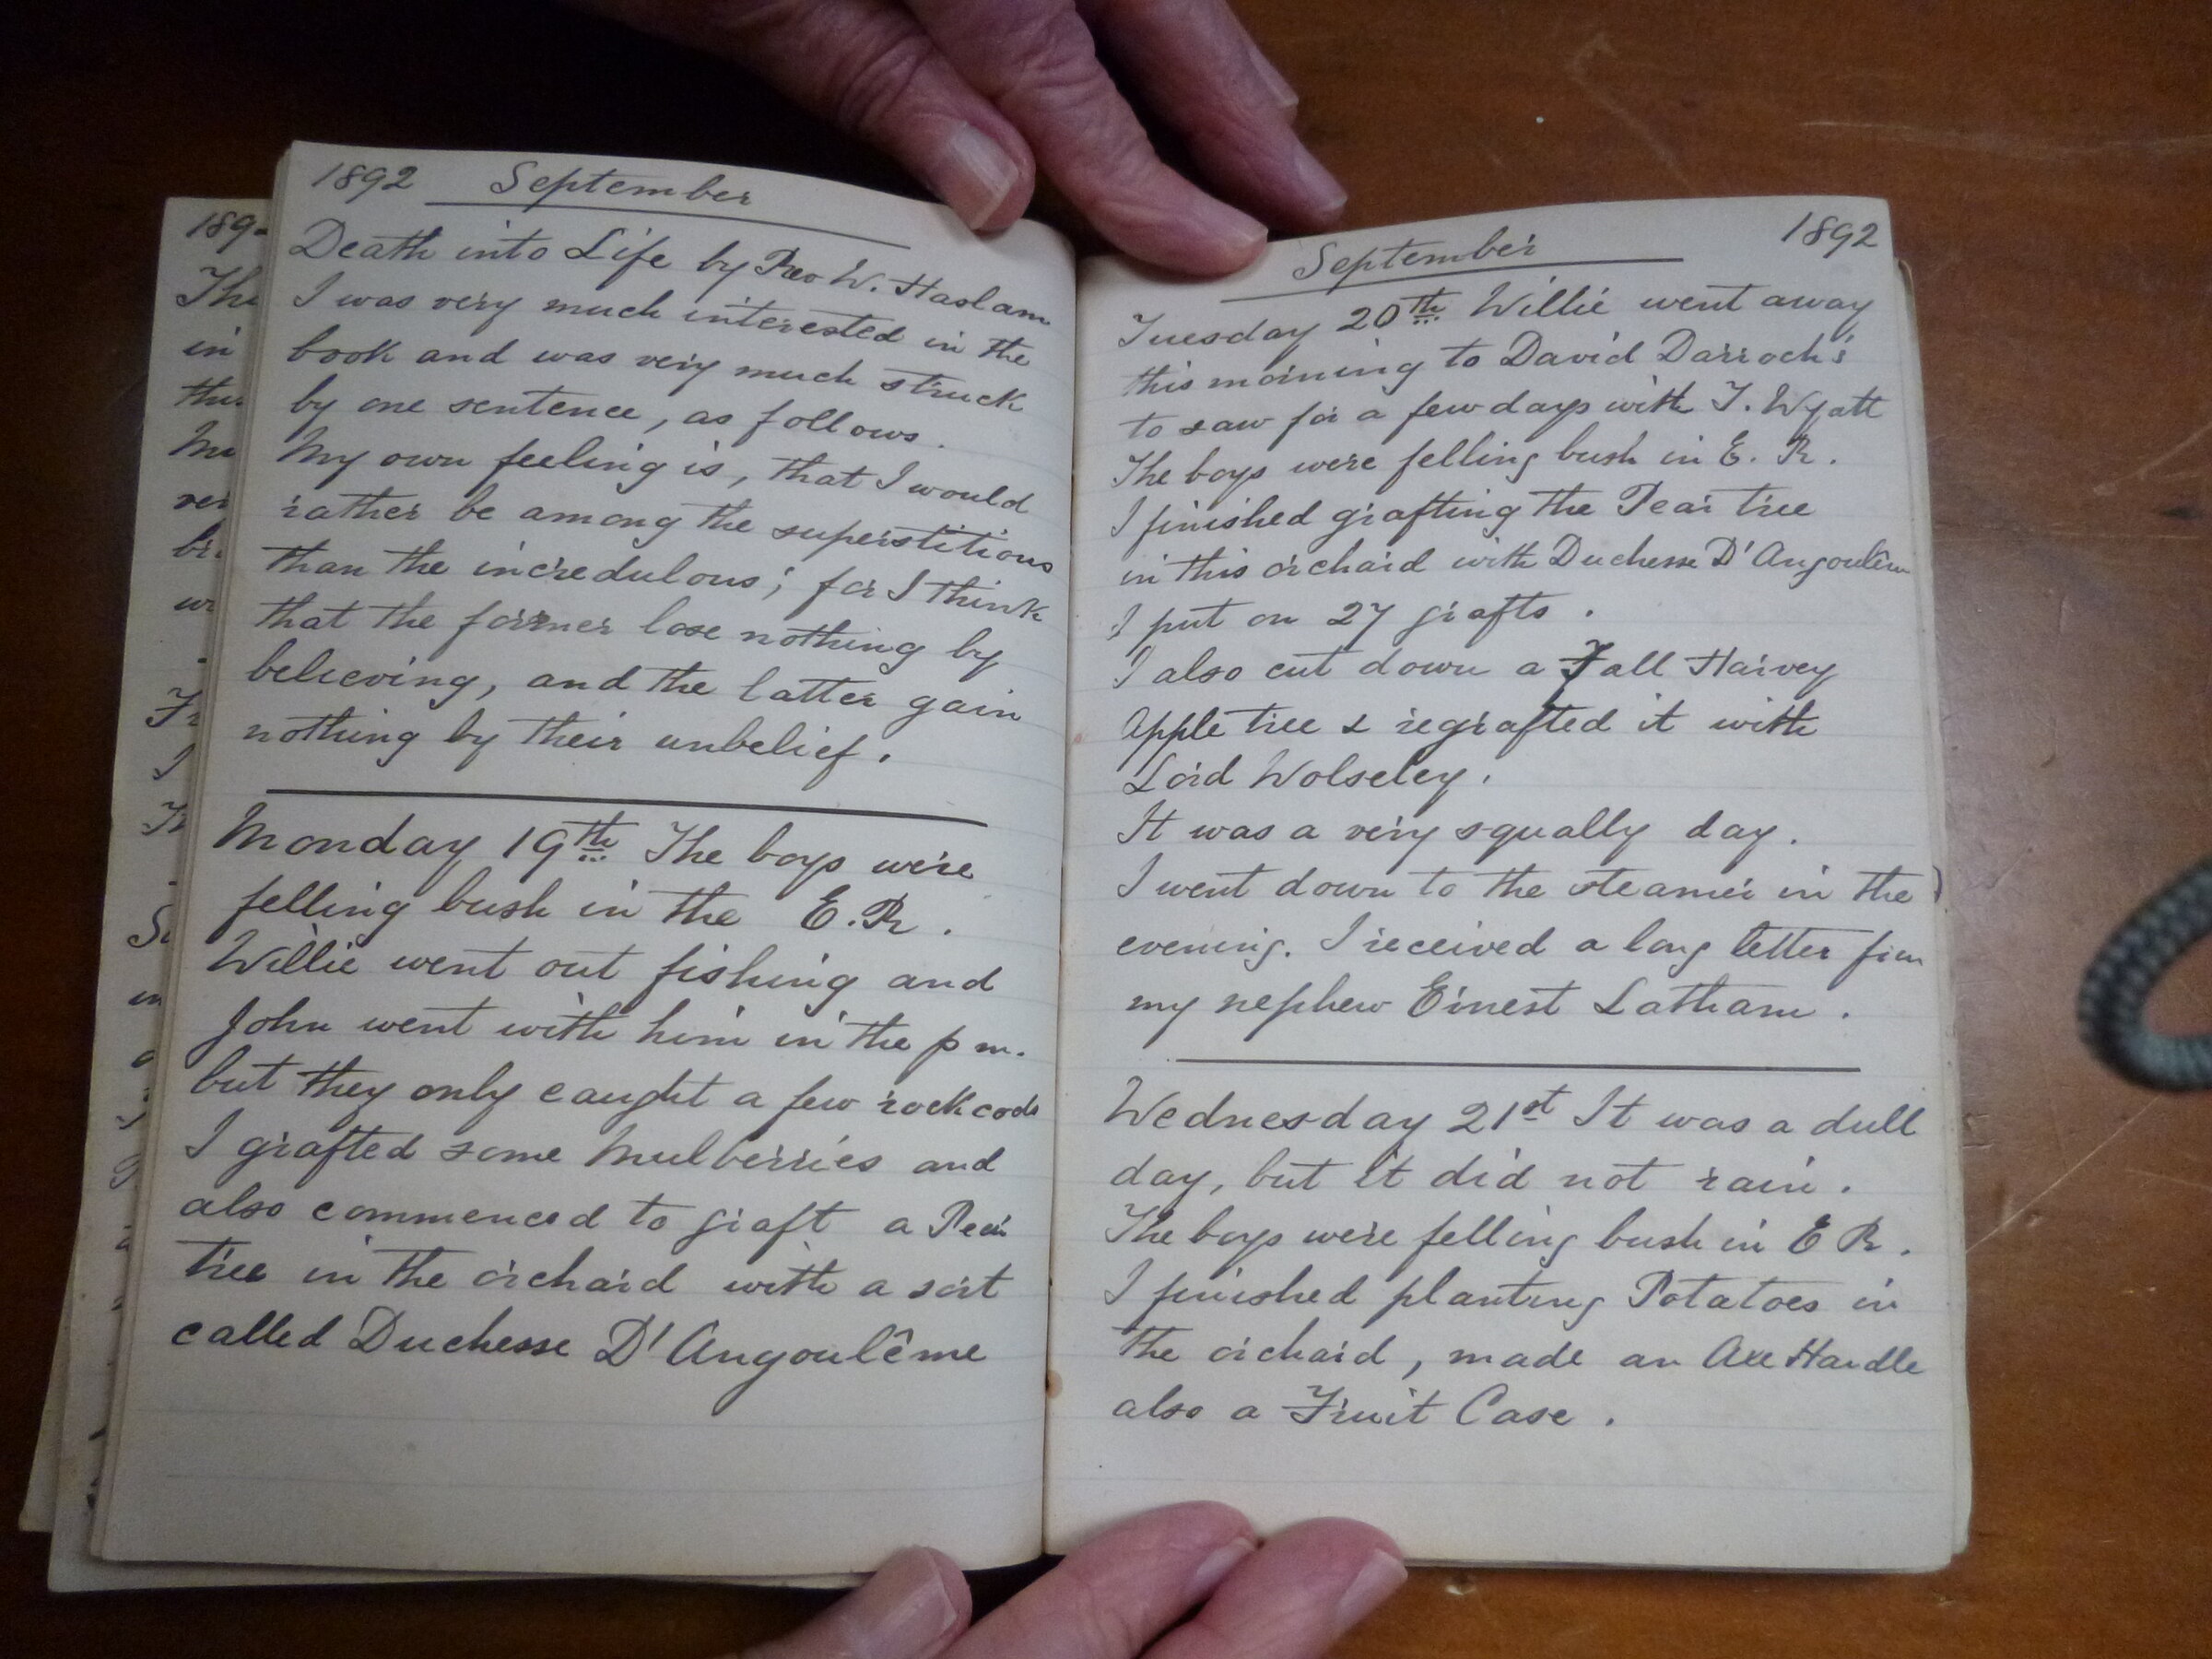 1892 September
Death into Life by Rev W. Haslam
I was very much interested in the
book and was very much struck
by one sentence, as follows.
My own feeling is, that I would
rather be among the superstitious
than the incredulous; for I think
that the former lose nothing by
believing, and the latter gain
nothing by their unbelief.
Monday 19th The boys were
felling bush in the E.R.
Willie went out fishing and
John went with him in the p m.
but they only caught a few rock cods
I grafted some Mulberries and
also commenced to graft a Pear
tree in the orchard with a sort
called Duchesse D'Angoulême
September 1892
Tuesday 20th Willie went away
this morning to David Darroch's
to saw for a few days with T. Wyatt
The boys were felling bush in E. R.
I finished grafting the Pear tree
in this orchard with Duchesse D'Angoulêm
I put on 27 grafts.
I also cut down a Fall Harvey
Apple tree & regrafted it with
Lord Wolseley.
It was a very squally day.
I went down to the steamer in the
evening. I received a long letter from
my nephew Ernest Latham.
Wednesday 21st It was a dull
day, but it did not rain.
The boys were felling bush in E R.
I finished planting Potatoes in
the orchard, made an Axe Handle
also a Fruit Case.